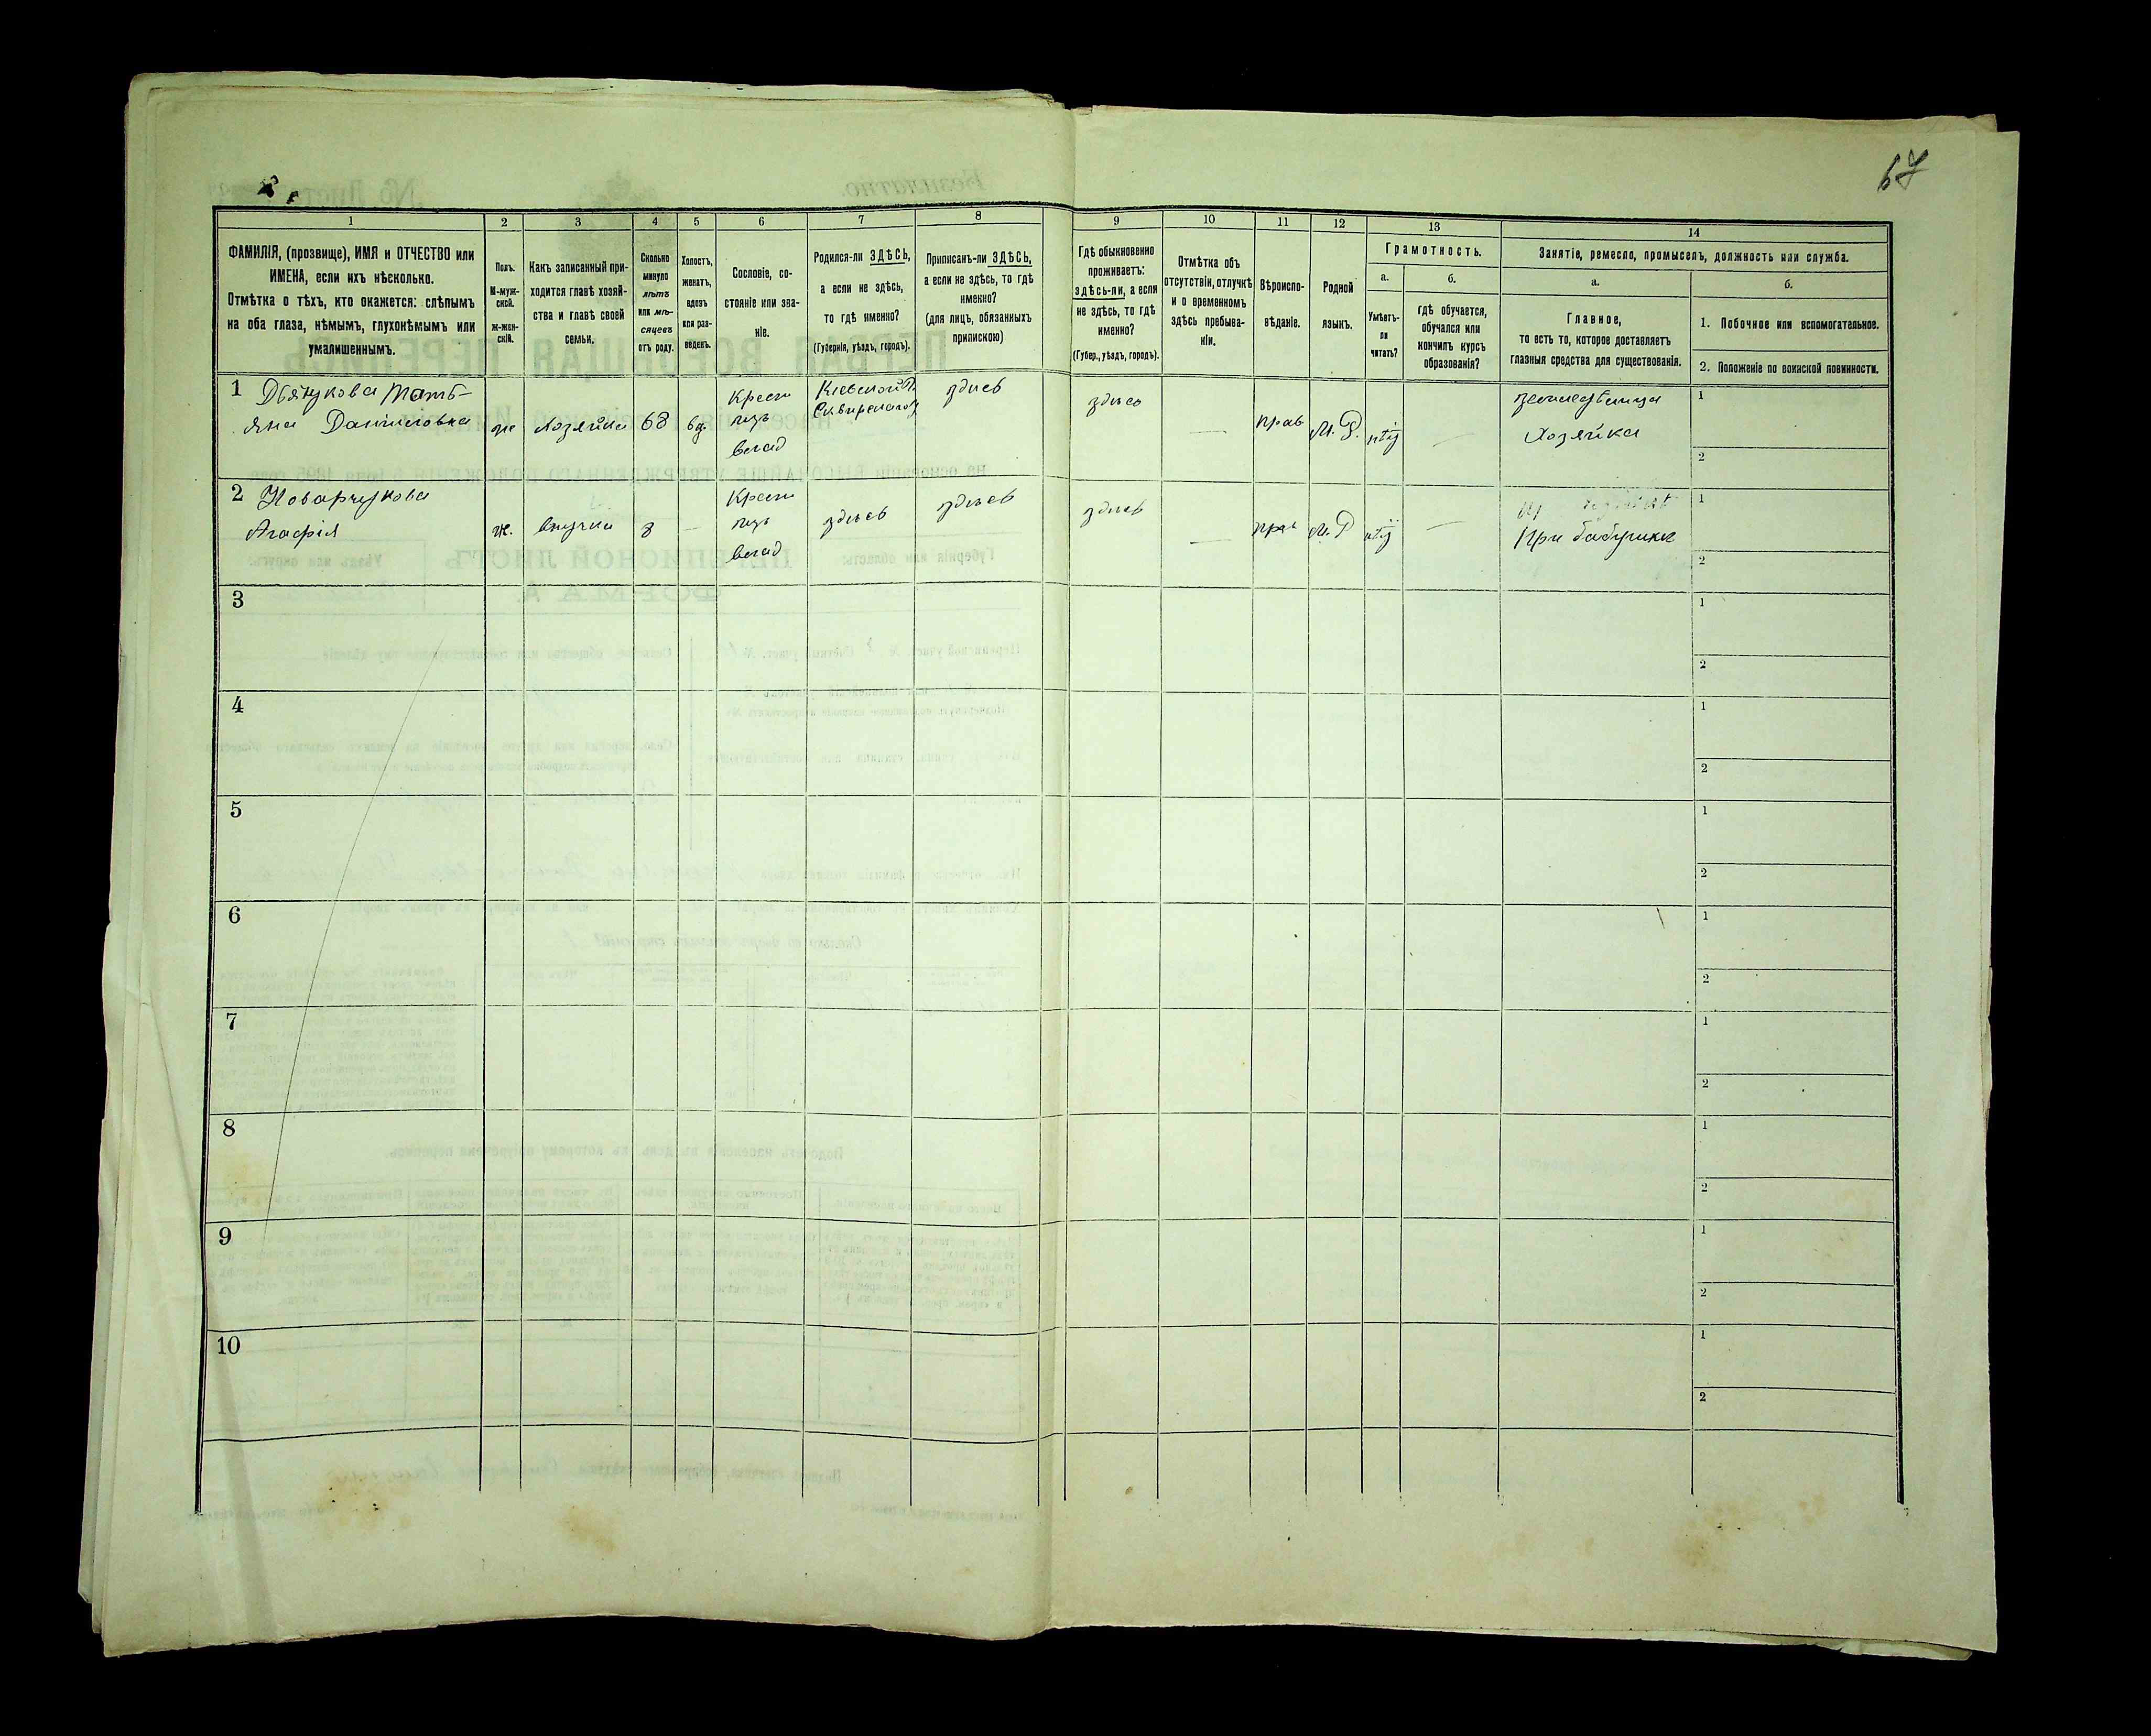 67
1
ФАМИЛІЯ, (прозвище), ИМЯ и ОТЧЕСТВО или
ИМЕНА, если ихъ нѣсколько.
Отмѣтка о тѣхъ, кто окажется: слѣпымъ
на оба глаза, нѣмымъ, глухонѣмымъ или
умалишеннымъ.
2
Полъ.
М-муж-
ской.
ж-жен-
скій.
3
Какъ записанный при-
ходится главѣ хозяй-
ства и главѣ своей
семьи.
4
Сколько
минуло
лѣтъ
или мѣ-
сяцевъ
отъ роду.
5
Холостъ,
женатъ,
вдовъ
или раз-
веденъ.
6
Сословіе, со-
стояніе или зва-
ніе.
7
Родился-ли ЗДѢСЬ,
а если не здѣсь,
то гдѣ именно?
(Губернія, уѣздъ, городъ).
8
Приписанъ-ли ЗДѢСЬ,
а если не здѣсь, то гдѣ
именно?
(для лицъ, обязанныхъ
припискою)
9
Гдѣ обыкновенно
проживаетъ:
здѣсь-ли, а если
не здѣсь, то гдѣ
именно?
(Губер., уѣздъ, городъ).
10
Отмѣтка объ
отсутствіи, отлучкѣ
и о временномъ
здѣсь пребыва-
ніи.
11
Вѣроиспо-
вѣданіе.
12
Родной
языкъ.
13
Грамотность.
а.
Умѣетъ-
ли
читать?
б.
гдѣ обучается,
обучался или
кончилъ курсъ
образованія?
14
Занятіе, ремесло, промыселъ, должность или служба.
а.
Главное,
то есть то, которое доставляетъ
главныя средства для существованія.
б.
1. Побочное или вспомогательное.
2. Положеніе по воинской повинности.
1
Тать-
яна Даниловна
ж
хозяйка
68
вд.
Крест
изъ
влад
Кіевской г.
Сквирскаго у.
здѣсь
здѣсь
—
прав
М. Р.
нѣт
—
хозяйка
1
2
2
Агафія
ж.
внучка
8
—
Крест
изъ
влад
здѣсь
здѣсь
здѣсь
—
прав
М. Р
нѣт
—
При бабушке
1
2
3
1
2
4
1
2
5
1
2
6
1
2
7
1
2
8
1
2
9
1
2
10
1
2